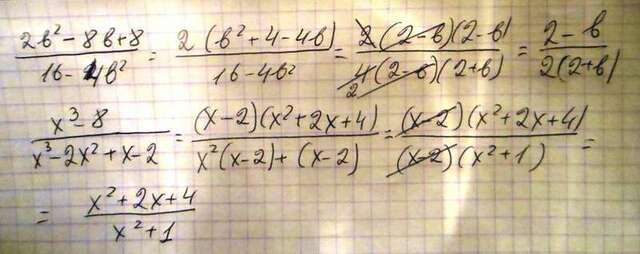 (2в² - 8в + 8)/(16 - 4в²) = 2(в² + 4 - 4в)/(16 - 4в²) = 2(2-в)(2-в)/4(2-в)(2+в) = (2-в)/2(2+в)
(x³ - 8)/(x³ - 2x² + x - 2) = (x-2)(x² + 2x + 4)/(x²(x-2) + (x-2)) = (x-2)(x² + 2x + 4)/(x-2)(x² + 1) =
= (x² + 2x + 4)/(x² + 1)